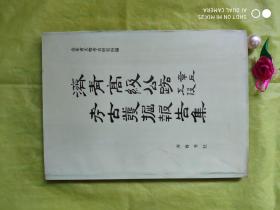 SHOT ON MI 9 SE
AI TRIPLE CAMERA
山东省文物考古研究所编
濟青高級公路章丘
工段
考古發掘報告集
齊魯書社